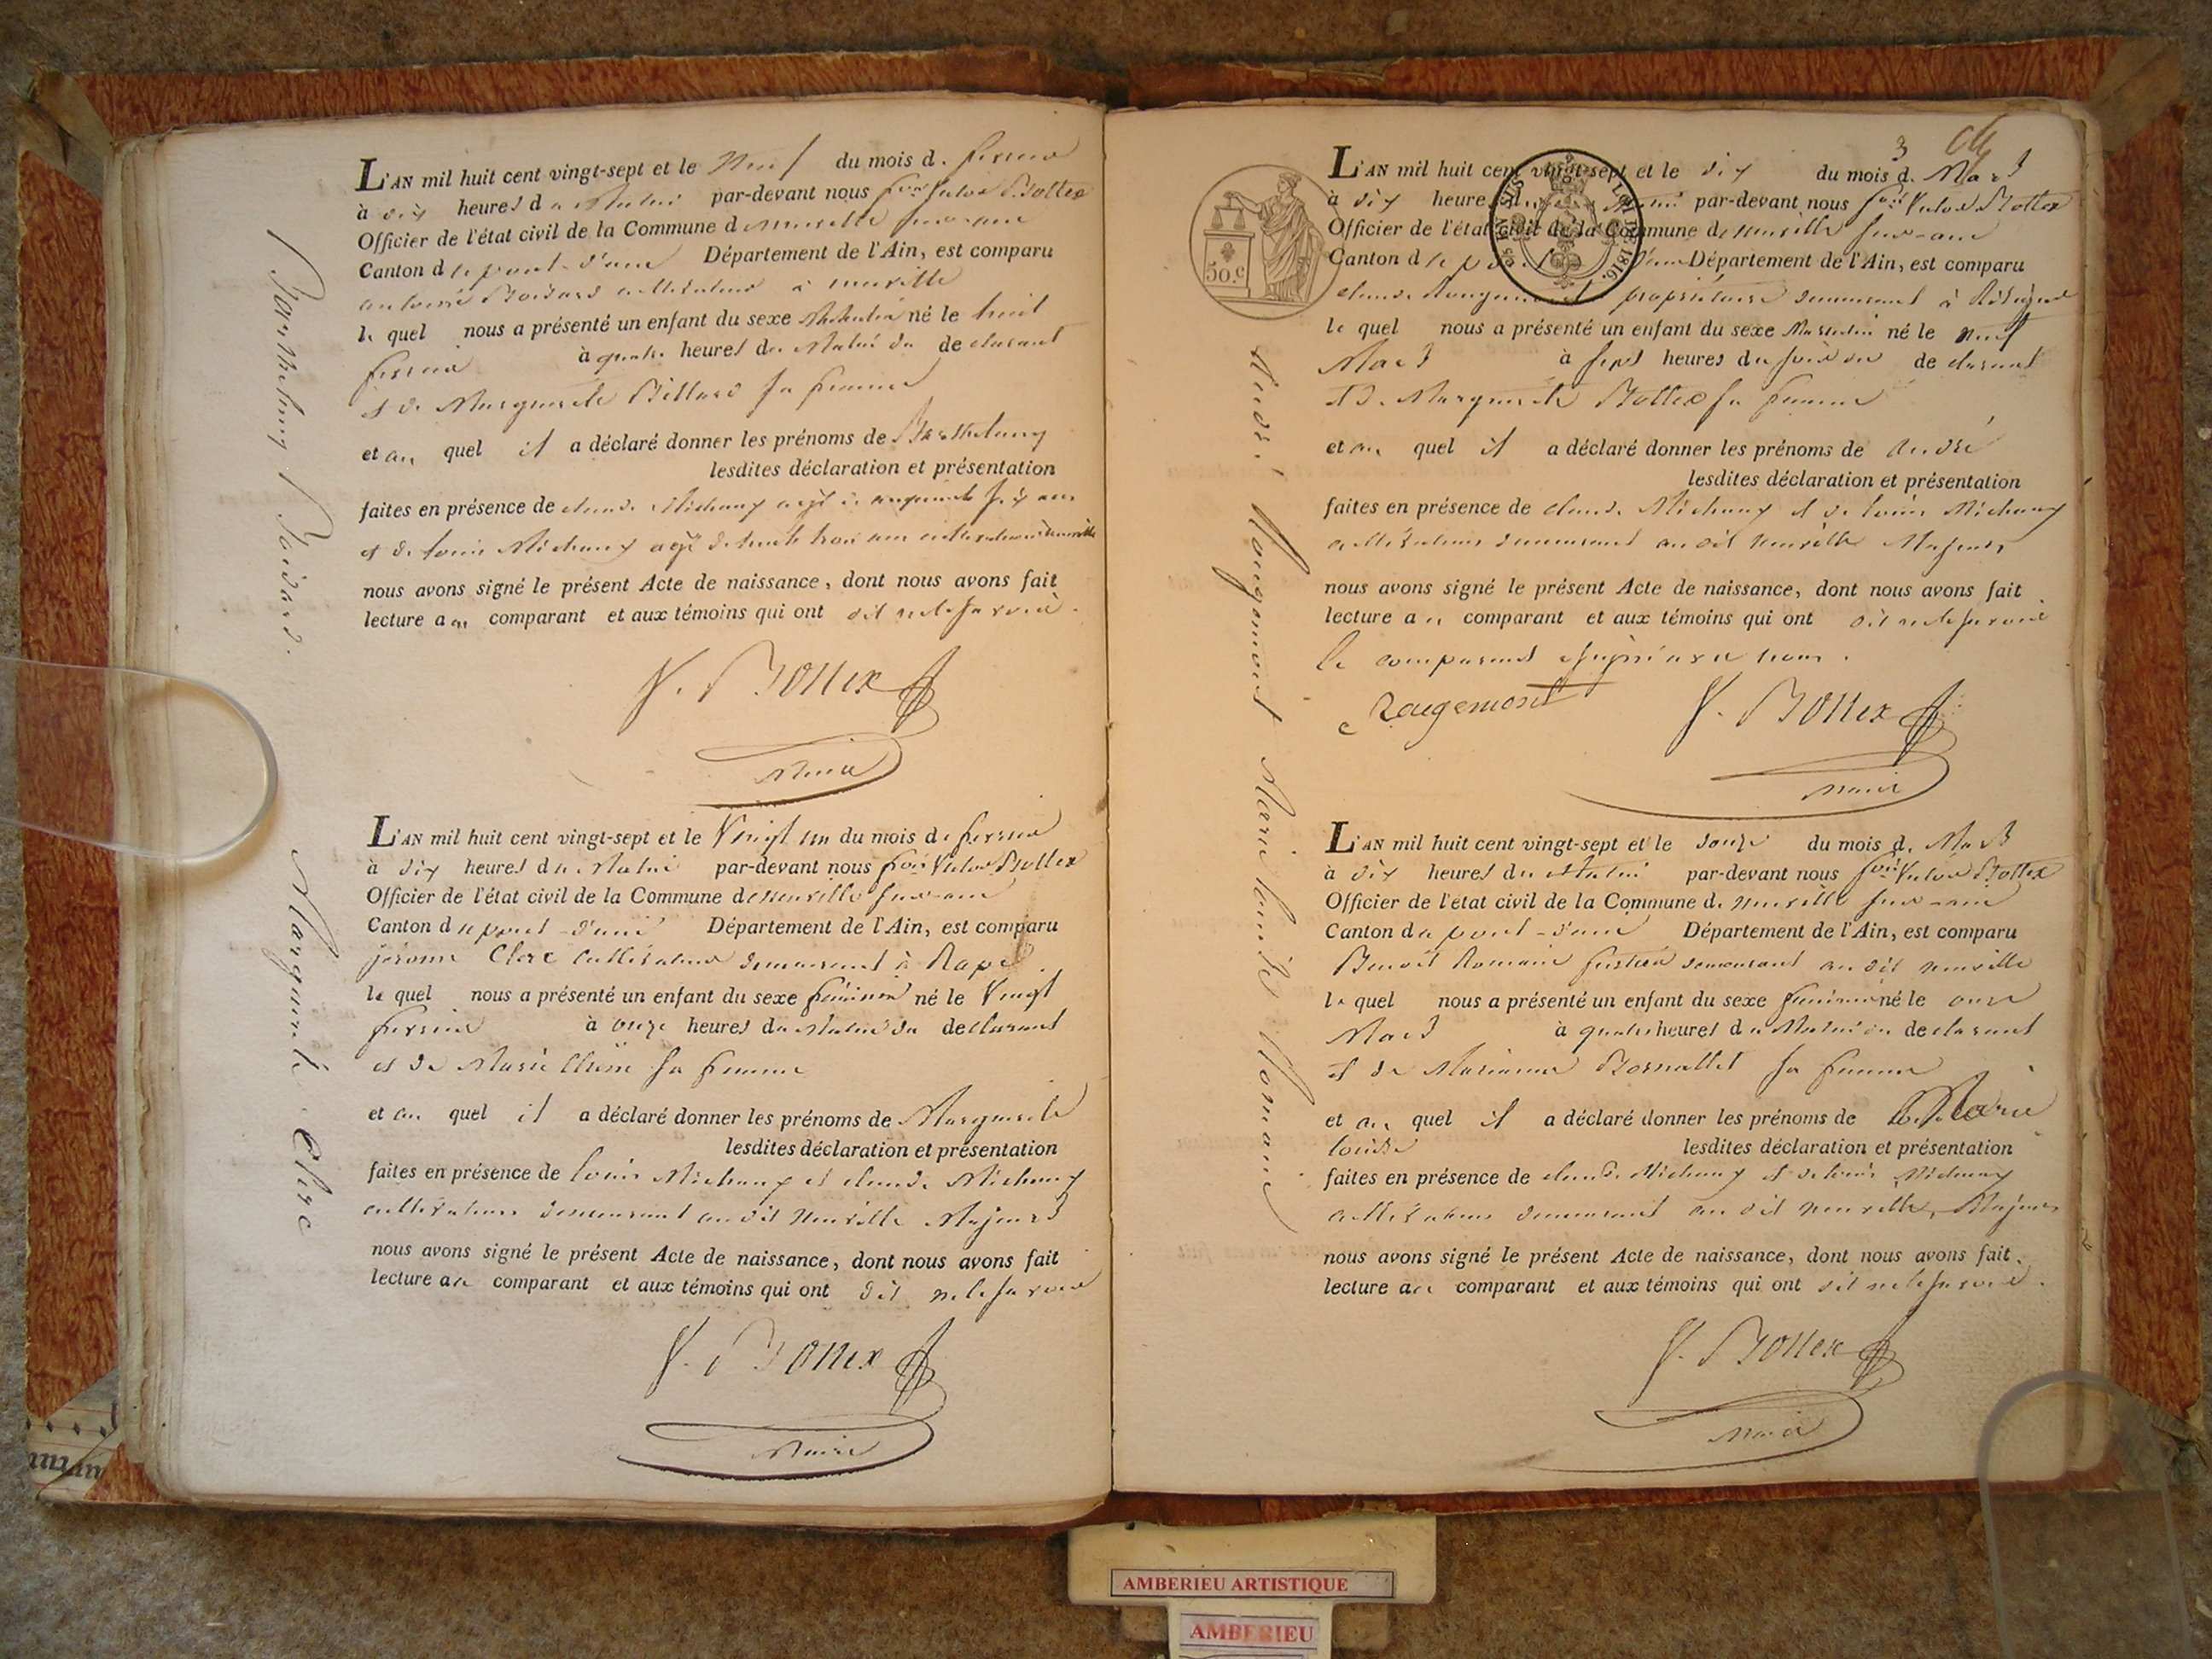 Barthelemy Boidard.
L'AN mil huit cent vingt-sept et le neuf du mois de fevrier
à dix heures du Matin par-devant nous fois Victor Bottex
Officier de l'état civil de la Commune de neuville sur-ain
Canton de pont-d'ain Département de l'Ain, est comparu
antoine Boidard cultivateur à neuville
le quel nous a présenté un enfant du sexe Masculin né le huit
fevrier à quatre heures du Matin du declarant
et de Marguerite Billard sa femme
et au quel il a déclaré donner les prénoms de Barthelemy
lesdites déclaration et présentation
faites en présence de claude Michaux agé de cinquante six ans
et de louis Michaux agé de trente trois ans cultivateurs à neuville
nous avons signé le présent Acte de naissance, dont nous avons fait
lecture au comparant et aux témoins qui ont dit ne le savoir.
V. Bottex
Maire
Marguerite Clerc
L'AN mil huit cent vingt-sept et le Vingt un du mois de fevrier
à dix heures du Matin par-devant nous fois Victor Bottex
Officier de l'état civil de la Commune de neuville sur-ain
Canton de pont-d'ain Département de l'Ain, est comparu
jerome Clerc cultivateur demeurant à Rape
le quel nous a présenté un enfant du sexe féminin né le Vingt
fevrier à onze heures du Matin du declarant
et de Marie sa femme
et au quel il a déclaré donner les prénoms de Marguerite
lesdites déclaration et présentation
faites en présence de louis Michaux et claude Michaux
cultivateurs demeurant au dit Neuville Majeurs
nous avons signé le présent Acte de naissance, dont nous avons fait
lecture au comparant et aux témoins qui ont dit ne le savoir
V. Bottex
Maire
3
50.c
LOI DE 1816.
André Rougemont
L'AN mil huit cent vingt-sept et le dix du mois de Mars
à dix heures du par-devant nous fois Victor Bottex
Officier de l'état civil de la Commune de neuville sur-ain
Canton de pont d'ain Département de l'Ain, est comparu
claude Rougemont propriétaire demeurant à
le quel nous a présenté un enfant du sexe Masculin né le neuf
Mars à sept heures du soir du declarant
et de Marguerite Bottex sa femme
et au quel il a déclaré donner les prénoms de André
lesdites déclaration et présentation
faites en présence de claude Michaux et de louis Michaux
cultivateurs demeurant au dit neuville Majeurs
nous avons signé le présent Acte de naissance, dont nous avons fait
lecture au comparant et aux témoins qui ont dit ne le savoir
le comparant a signé avec nous.
Rougemont
V. Bottex
Maire
Marie louise Romain
L'AN mil huit cent vingt-sept et le douze du mois de Mars
à dix heures du Matin par-devant nous fois Victor Bottex
Officier de l'état civil de la Commune de neuville sur-ain
Canton de pont-d'ain Département de l'Ain, est comparu
Benoit Romain demeurant au dit neuville
le quel nous a présenté un enfant du sexe féminin né le onze
Mars à quatre heures du Matin du declarant
et de Marianne sa femme
et au quel il a déclaré donner les prénoms de Marie
louise lesdites déclaration et présentation
faites en présence de claude Michaux et de louis Michaux
cultivateurs demeurant au dit neuville, Majeurs
nous avons signé le présent Acte de naissance, dont nous avons fait
lecture au comparant et aux témoins qui ont dit ne le savoir.
V. Bottex
Maire
AMBERIEU ARTISTIQUE
AMBERIEU